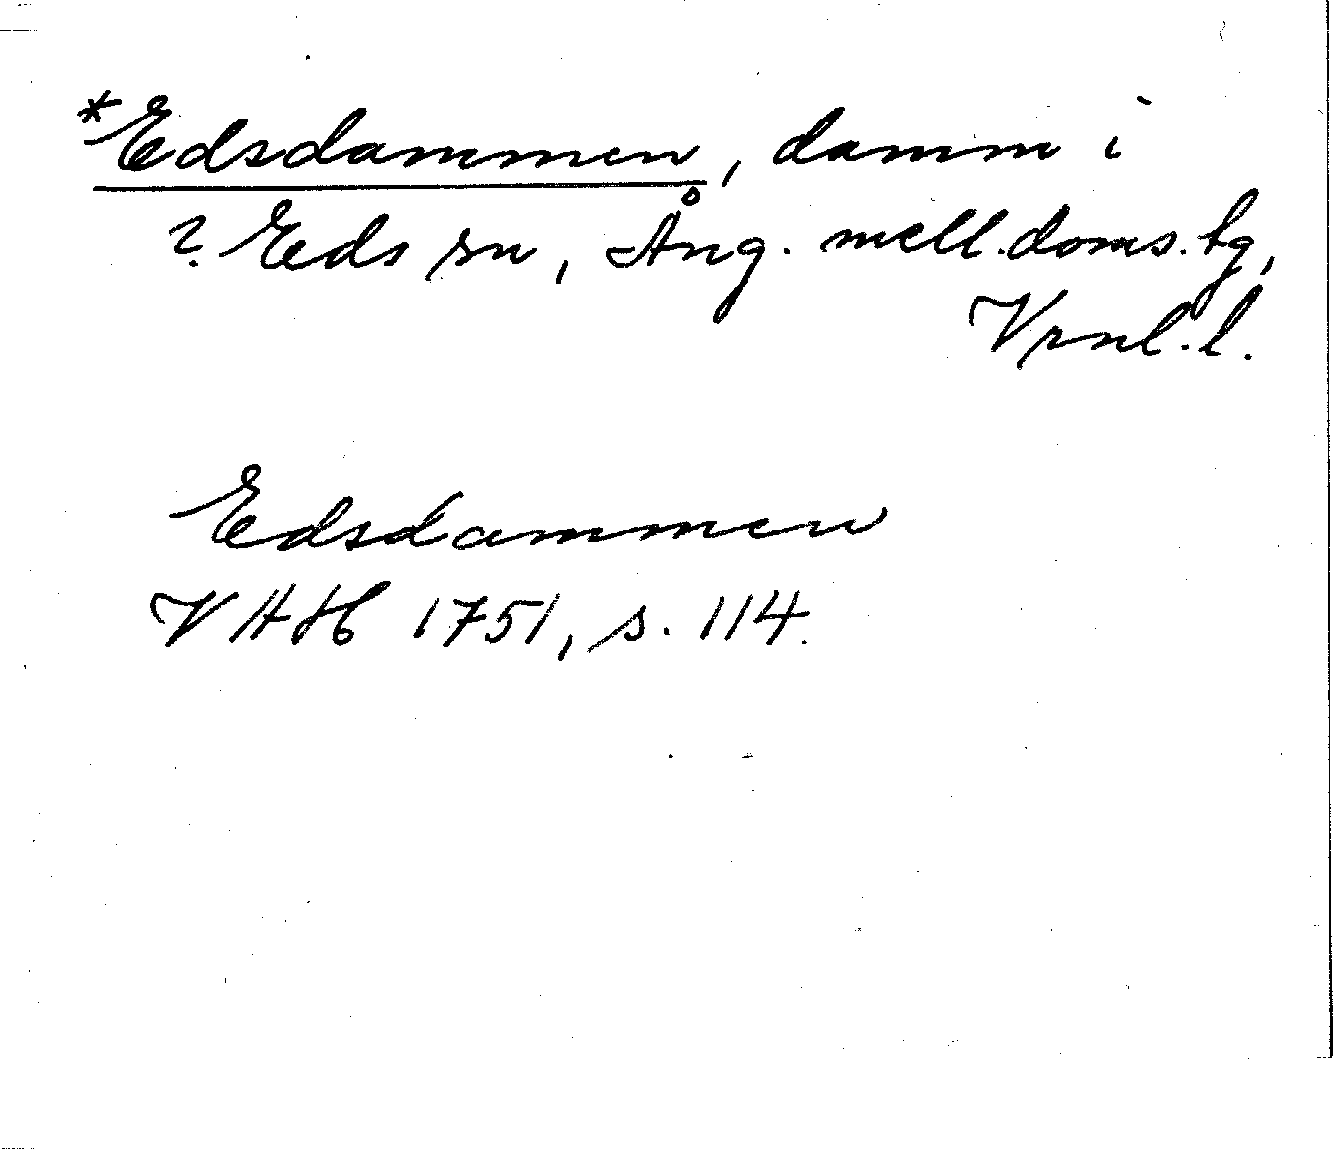 *Edsdammen, damm i
? Eds sn, Ång. mell. doms. tg,
Vrml. l.
Edsdammen
VHH 1751, s. 114.